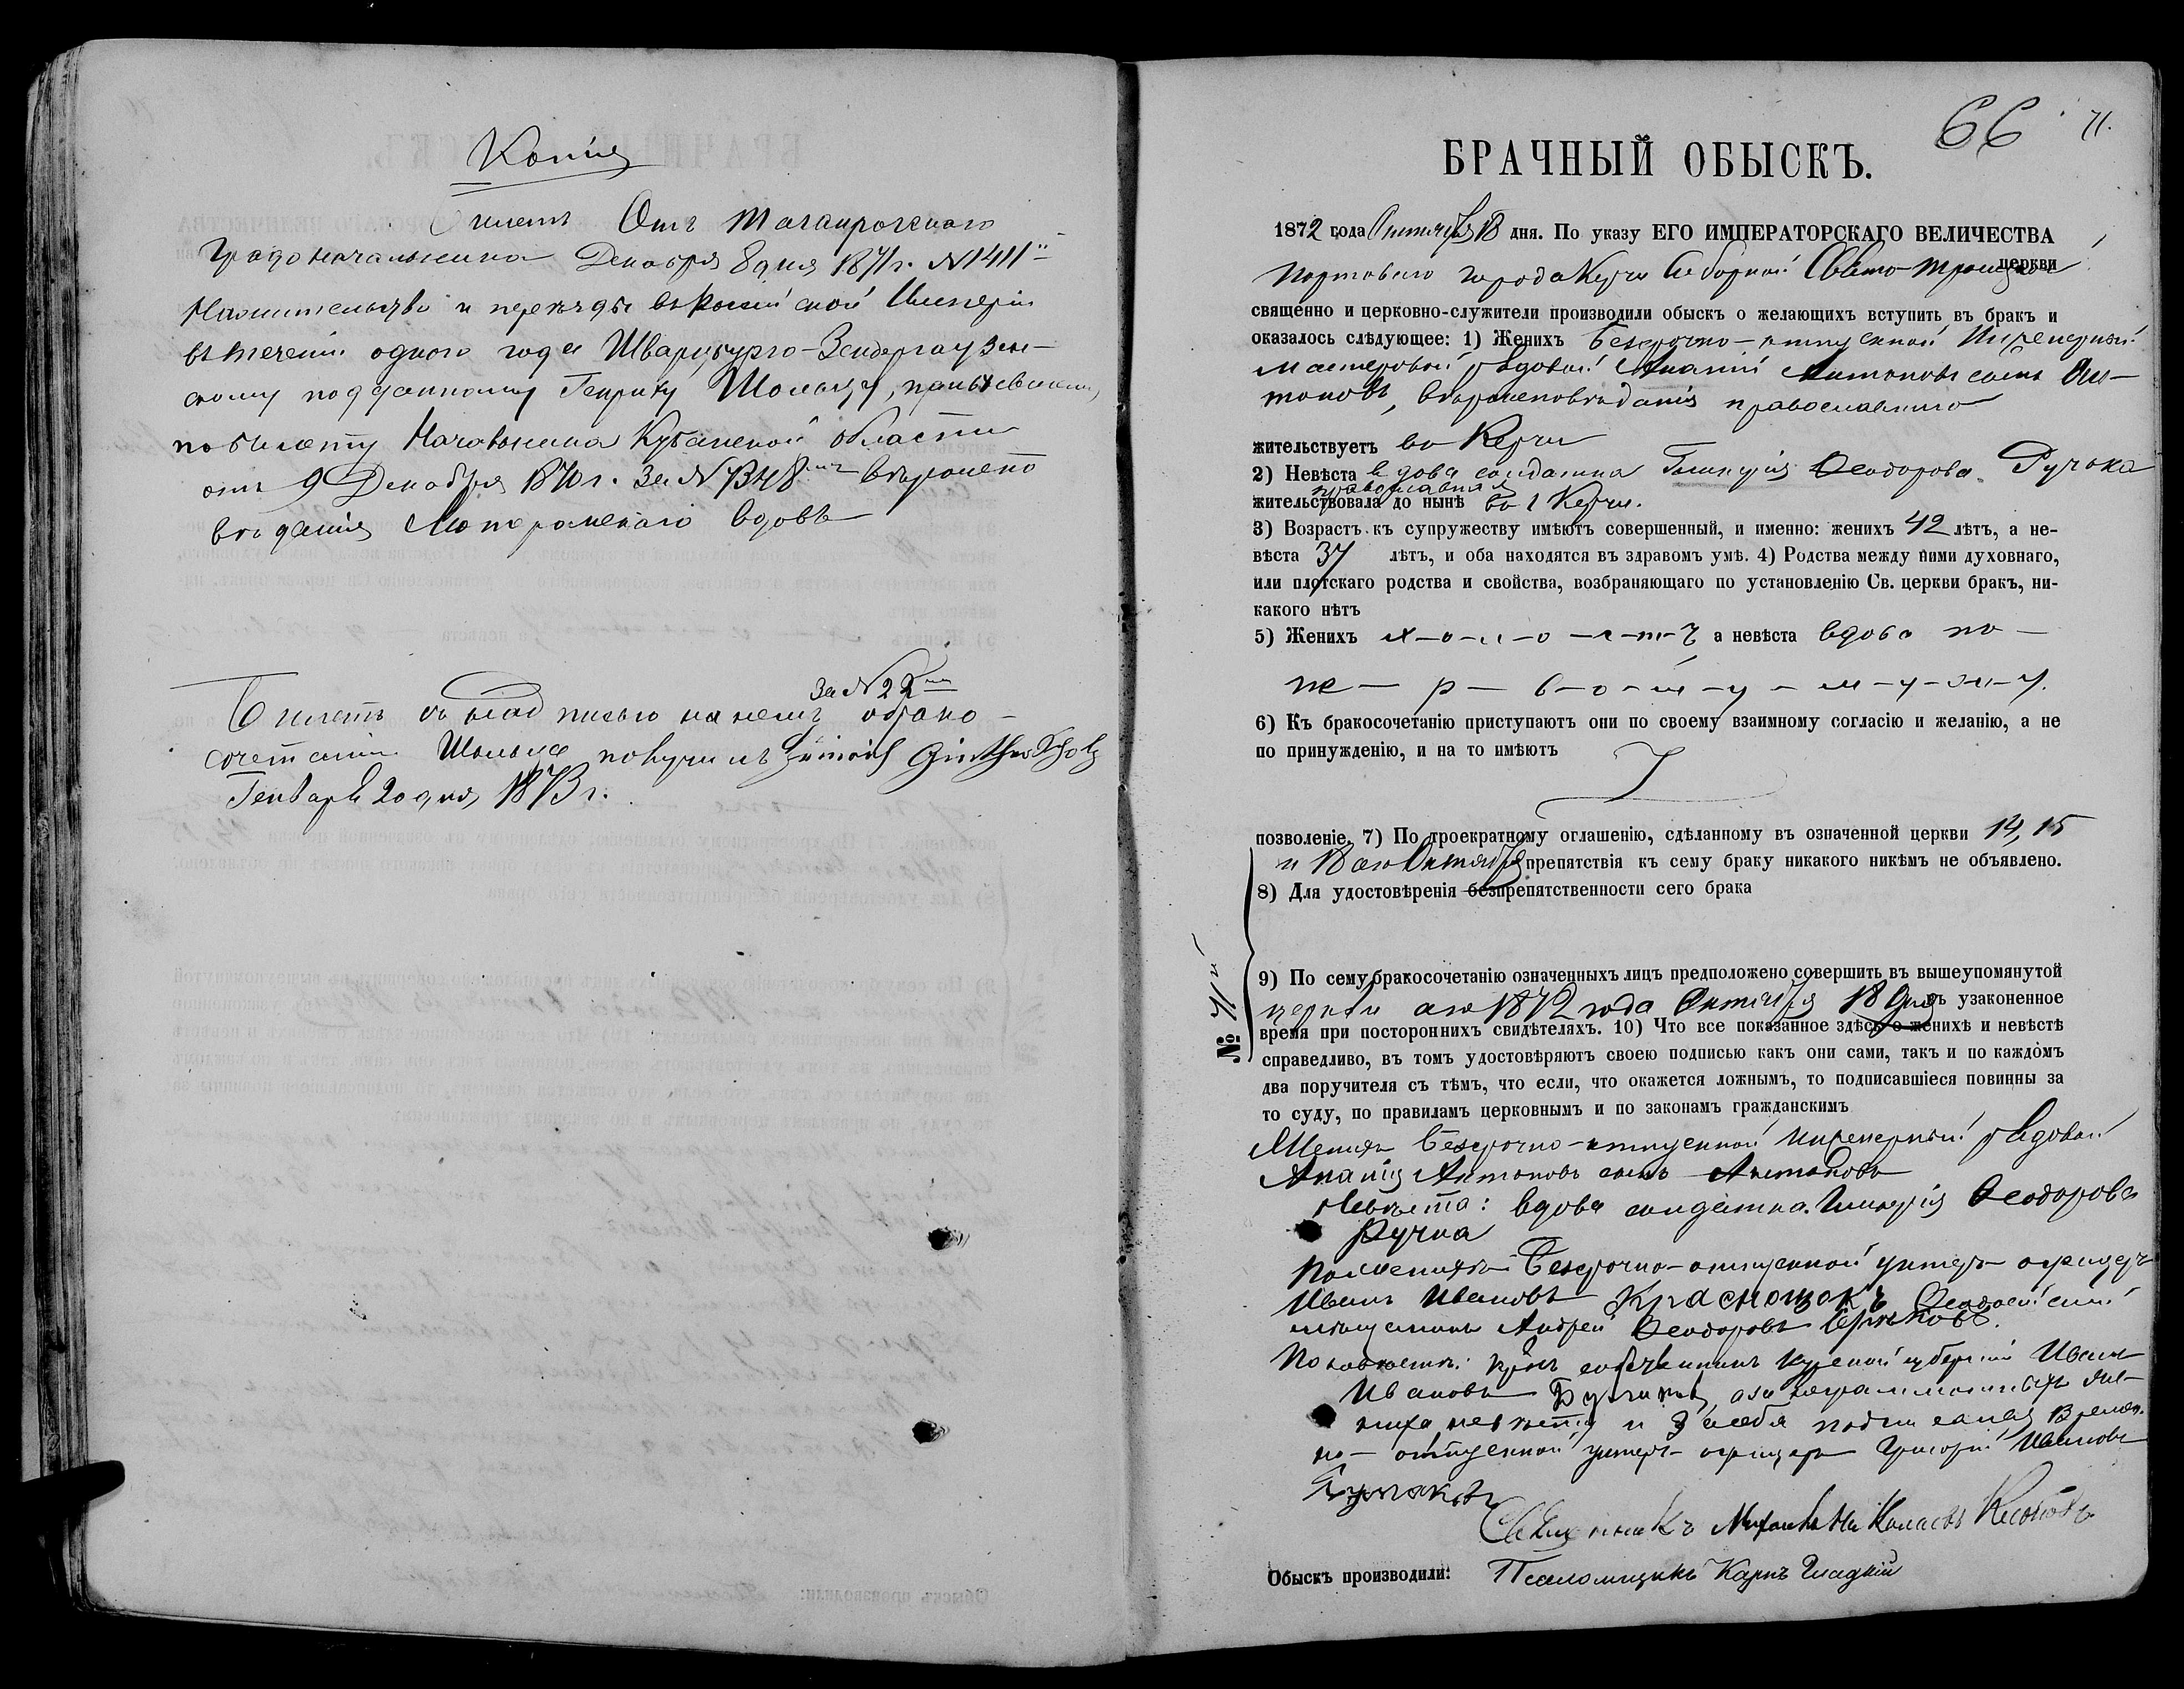 Копія
Билетъ Отъ Таганрогскаго
Градоначальника Декабря 8 дня 1871 г. N 1411
На жительство и переѣзды въ Россійской Имперіи
въ теченіи одного года Шварцбурго-Зондергаузен-
скому подданному Генриху Шольцу, прибывшему
по билету Начальника Кубанской области
отъ 9 Декабря 1870 г. За N 1348 вѣроиспо
вѣданія Лютеранскаго вдовъ
За N 22
Билетъ съ надписью на немъ о брако-
сочетаніи Шольца получилъ Heinrich Günther Scholz
Генваря 20 дня 1873 г.
66 71.
БРАЧНЫЙ ОБЫСКЪ.
1872 года Октября 18 дня. По указу ЕГО ИМПЕРАТОРСКАГО ВЕЛИЧЕСТВА
Портоваго города Керчи Соборной Свято-Троицкой церкви
священно и церковно-служители производили обыскъ о желающихъ вступить въ бракъ и
оказалось слѣдующее: 1) Женихъ Безсрочно-отпускной Инженерный
мастеровой рядовой Ананій Антоновъ сынъ Ан-
тоновъ, вѣроисповѣданія православнаго
жительствуетъ въ Керчи
2) Невѣста вдова солдатка Гликерія Ѳеодорова Ручка
православная
жительствовала до нынѣ въ г Керчи.
3) Возрастъ къ супружеству имѣютъ совершенный, и именно: женихъ 42 лѣтъ, а не-
вѣста 37 лѣтъ, и оба находятся въ здравомъ умѣ. 4) Родства между ними духовнаго,
или плотскаго родства и свойства, возбраняющаго по установленію Св. церкви бракъ, ни-
какого нѣтъ
5) Женихъ х-о-л-о-с-т-ъ а невѣста вдова по-
пе-р-в-о-м-у-м-у-ж-у.
6) Къ бракосочетанію приступаютъ они по своему взаимному согласію и желанію, а не
по принужденію, и на то имѣютъ
позволеніе. 7) По троекратному оглашенію, сдѣланному въ означенной церкви 14, 15
и 18 го Октября препятствія къ сему браку никакого никѣмъ не объявлено.
8) Для удостовѣренія безпрепятственности сего брака
№ 71й
9) По сему бракосочетанію означенныхъ лицъ предположено совершить въ вышеупомянутой
церкви сего 1872 года Октября 18 дня въ узаконенное
время при постороннихъ свидѣтеляхъ. 10) Что все показанное здѣсь о женихѣ и невѣстѣ
справедливо, въ томъ удостовѣряютъ своею подписью какъ они сами, такъ и по каждомъ
два поручителя съ тѣмъ, что если, что окажется ложнымъ, то подписавшіеся повинны за
то суду, по правиламъ церковнымъ и по законамъ гражданскимъ
Женихъ Безсрочно-отпускной инженерный рядовой
Ананій Антоновъ сынъ Антоновъ
Невѣста: вдова солдатка Гликерія Ѳеодорова
Ручка
По женихѣ Безсрочно-отпускной унтеръ-офицеръ
Иванъ Ивановъ Краснощокъ Ѳеодосійскій
мѣщанинъ Андрей Ѳеодоровъ
По невѣстѣ: Курской губерніи Иванъ
Ивановъ за неграмотныхъ же-
ниха невѣсту и за себя подписался Времен
но-отпускной унтеръ-офицеръ Григорій Ивановъ
Священникъ Михаилъ Николаевъ
Обыскъ производили: Псаломщикъ Карпъ Гладкій